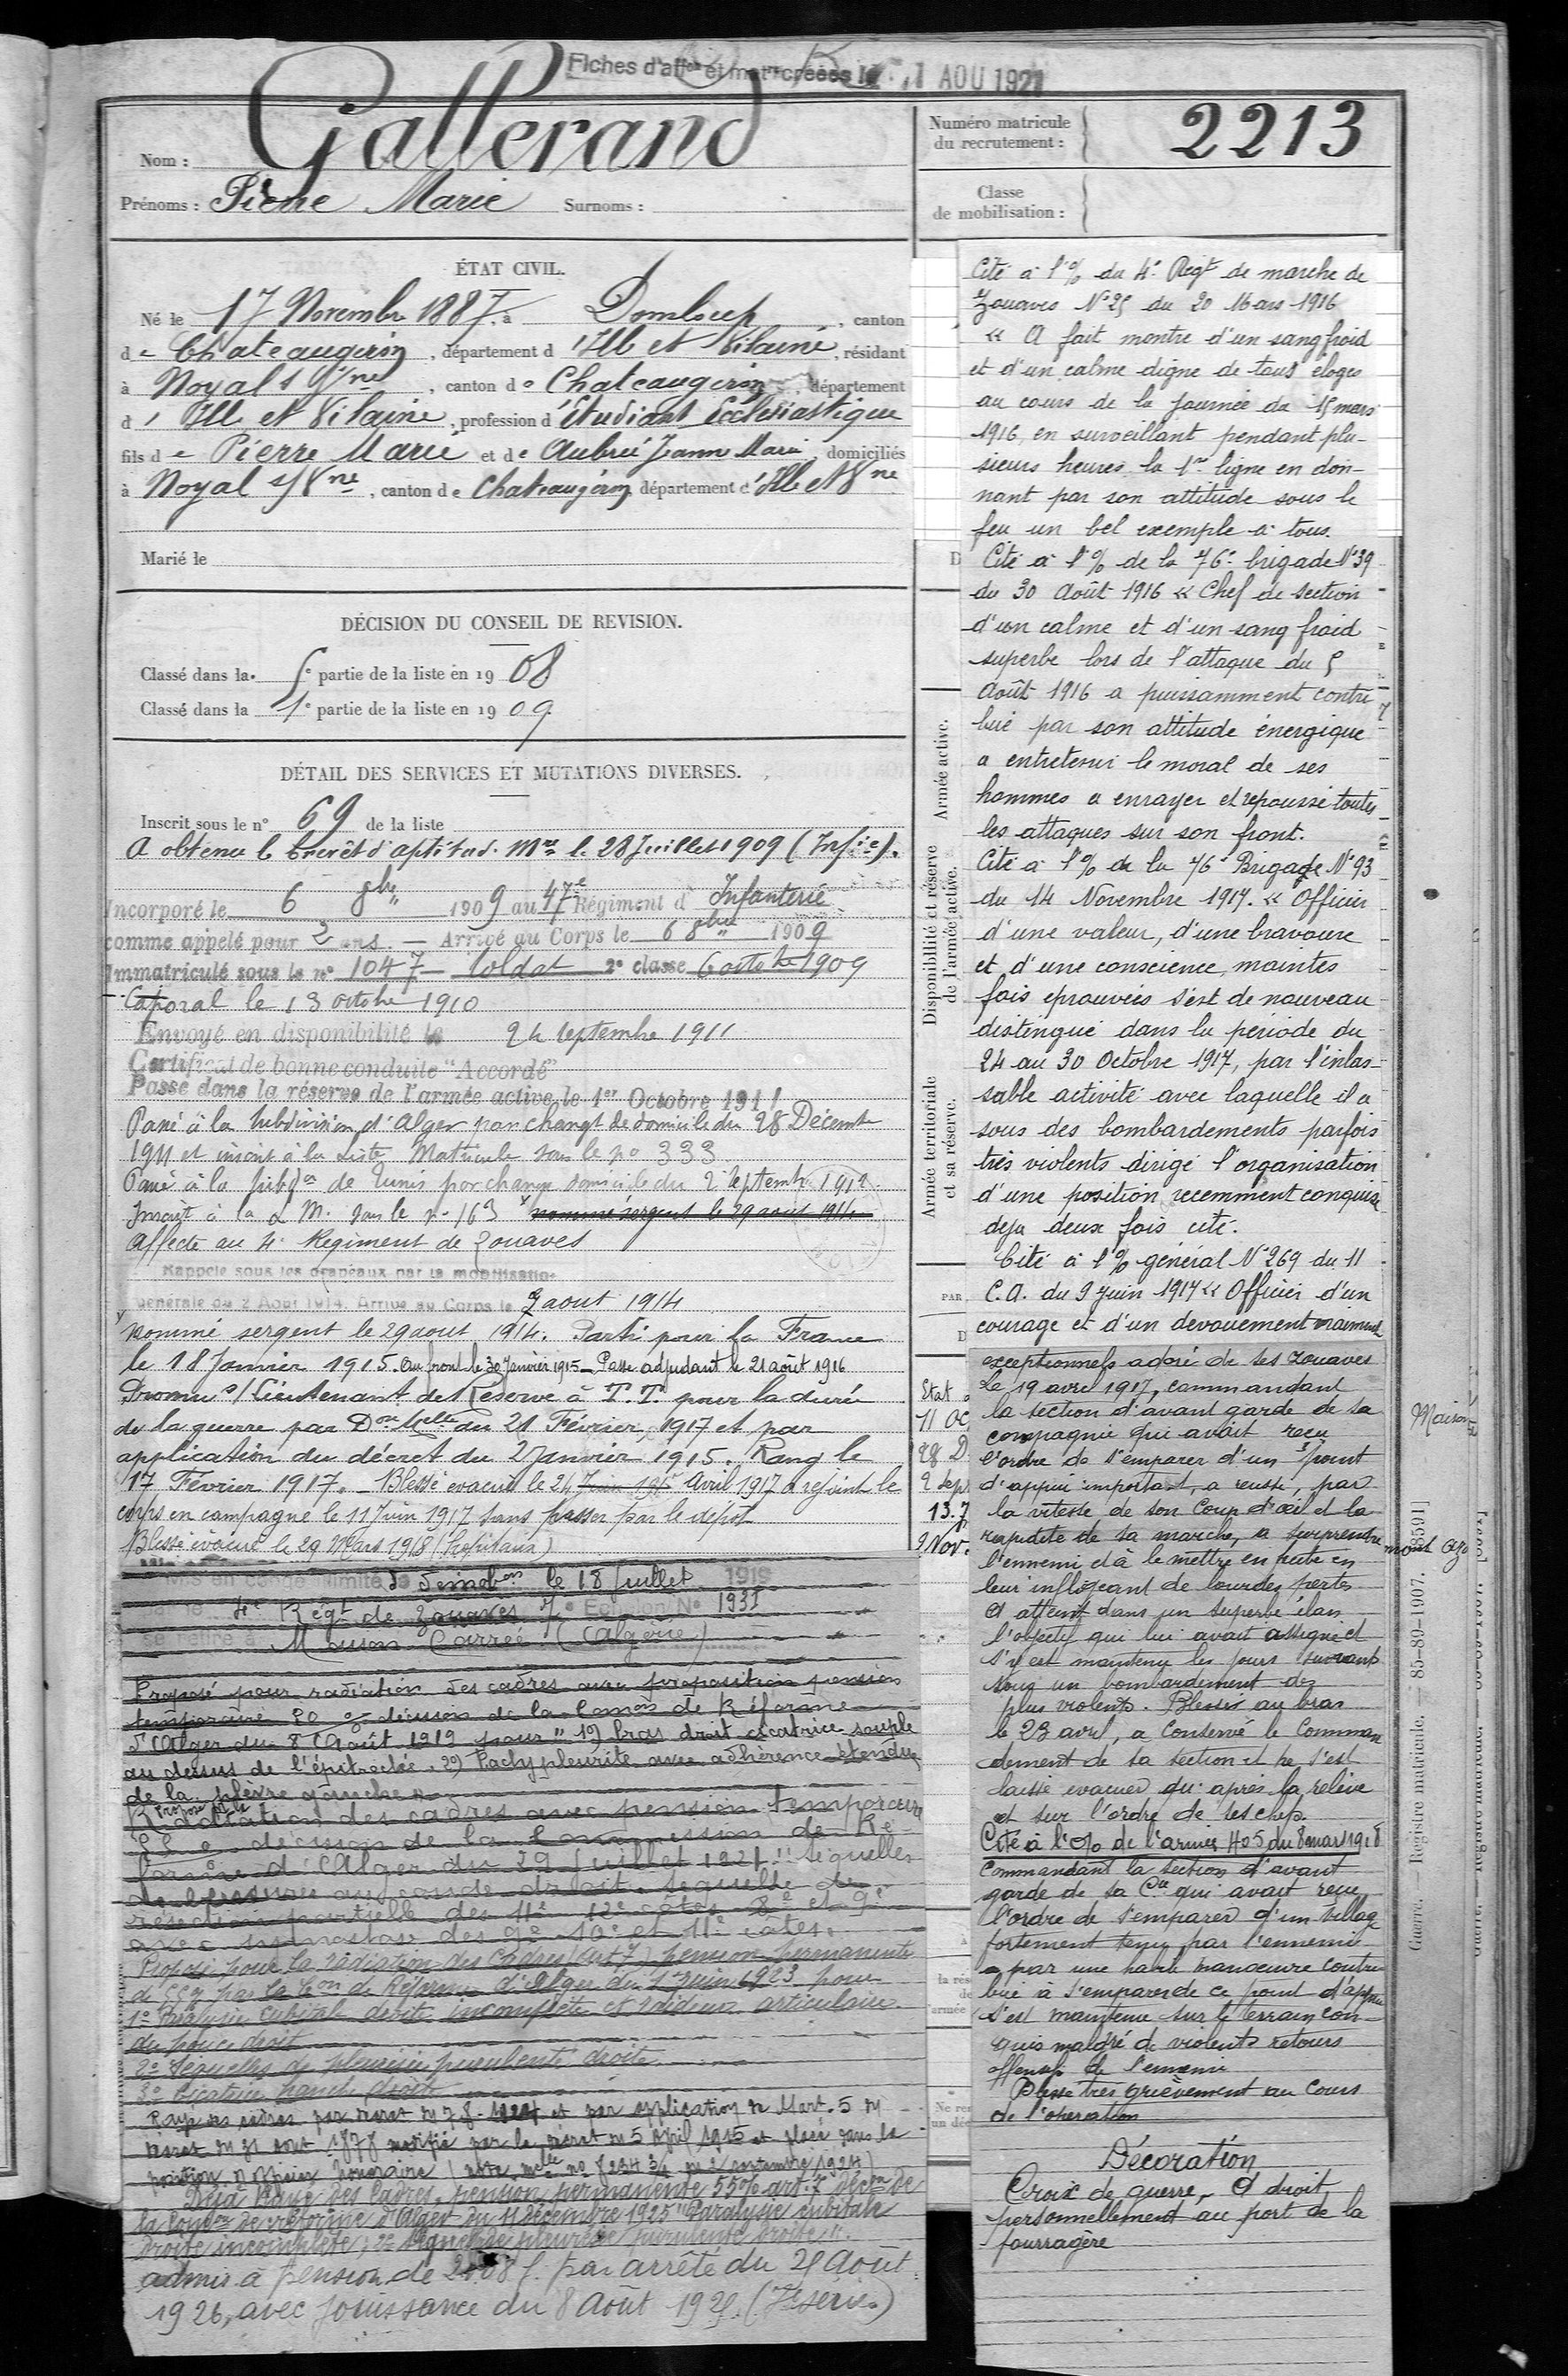 Fiches d'affon et matre créées le 11 AOU 1921
Nom : Gallerand
Prénoms : Pierre Marie Surnoms :
Numéro matricule
du recrutement : 2213
Classe
de mobilisation :
ÉTAT CIVIL.
Né le 17 Novembre 1887, à Domloup, canton
de Chateaugiron, département d'Ille et Vilaine, résidant
à Noyal s/ Vne, canton de Chateaugiron, département
d'Ille et Vilaine, profession d'étudiant ecclésiastique
fils de Pierre Marie et de Aubrée Jeanne Marie, domiciliés
à Noyal s/ Vne, canton de Chateaugiron, département d'Ille et Vne
Marié le
DÉCISION DU CONSEIL DE REVISION.
Classé dans la 5e partie de la liste en 1908
Classé dans la 1e partie de la liste en 1909
DÉTAIL DES SERVICES ET MUTATIONS DIVERSES.
Inscrit sous le n° 69 de la liste
A obtenu le brevêt d'aptitud. Mre le 28 Juillet 1909 (Infie).
Incorporé le 6 8bre 1909 au 47e Régiment d'Infanterie
comme appelé pour 2 ans. — Arrivé au Corps le 6 8bre 1909
Immatriculé sous le n° 1047 — soldat 2e classe 6 octobre 1909
Caporal le 13 octobre 1910
Envoyé en disponibilité le 24 septembre 1911
Certificat de bonne conduite "Accordé"
Passé dans la réserve de l'armée active, le 1er Octobre 1911
Passé à la subdivision d'Alger par changt de domicile du 28 Décembre
1911 et inscrit à la Liste Matricule sous le no 333
Passé à la subdon de Tunis par change domicile du 2 septembre 1912.
Inscrit à la L M. sous le no 163 nommé sergent le 29 août 1914
Affecté au 4e Régiment de Zouaves
Rappelé sous les drapeaux par la mobilisation
générale du 2 Août 1914. Arrivé au Corps le 3 aout 1914
Nommé sergent le 29 aout 1914. Parti pour la France
le 18 Janvier 1915. Au front le 30 Janvier 1915 — Passé adjudant le 21 août 1916
Promu s/ Lieutenant de Réserve à T.T. pour la durée
de la guerre par Don Melle du 21 Février 1917 et par
application du décret du 2 Janvier 1915. Rang le
17 Février 1917. — Blessé évacué le 24 Avril 1917 a rejoint le
corps en campagne le 11 Juin 1917 sans passer par le dépôt
Blessé évacué le 29 Mars 1918
Mis en congé illimité de démobon le 18 Juillet 1919
4e Régt de Zouaves 7e Echelon N°
se retire à Maison Carrée (Algérie)
Proposé pour radiation des cadres avec proposition pension
temporaire 20 % décision de la Comon de Réforme
d'Alger du 8 Août 1919 pour " 1°) bras droit cicatrice souple
au dessus de l'épitrochlée. 2°) Pachypleurite avec adhérence étendue
de la plèvre gauche "
Proposé pr la Radiation des cadres avec pension temporaire
55 % décision de la Commission de Ré-
forme d'Alger du 29 Juillet 1921 " Séquelles
résection partielle des 11e 12e côtes 8e et 9e
avec synostose des 9e 10e et 11e cotes.
Proposé pour la radiation des Cadres (art 7) pension permanente
de 55 % par la Con de Réforme d'Alger du 1er juin 1923 pour
1° Paralysie cubitale droite incomplète et raideur articulaire
du pouce droit
2° Séquelles de pleurésie purulente droite
3° Cicatrice hanche droite
Rayé des cadres par décret du 7.8.1924 et par application de l'art. 5 du
décret du 31 aout 1878 modifié par le décret du 5 avril 1915 et placé dans la
position d'officier honoraire (note melle no 7234 3/4 du 2 septembre 1924)
Déjà Rayé des Cadres, pension permanente 55% art. 7 décon de
la Comon de réforme d'Alger du 11 décembre 1925 "Paralysie cubitale
droite incomplète, 2° Séquelle pleurésie purulente droite".
admis à pension de 2408 f. par arrêté du 21 Août
1926, avec jouissance du 8 Août 1921. (7e série)
Cité à l'% du 4e Régt de marche de
Zouaves N° 25 du 20 Mars 1916
« A fait montre d'un sang froid
et d'un calme digne de tous éloges
au cours de la journée du 15 mars
1916, en surveillant pendant plu-
sieurs heures la 1re ligne en don-
nant par son attitude sous le
feu un bel exemple à tous.
Cité à l'% de la 76e brigade N° 39
du 30 Août 1916 « Chef de section
d'un calme et d'un sang froid
superbe lors de l'attaque du 5
Août 1916 a puissamment contri
bué par son attitude énergique
a entretenir le moral de ses
hommes a enrayer et repoussé toutes
les attaques sur son front.
Cité à l'% de la 76e Brigade N° 93
du 14 Novembre 1917. « Officier
d'une valeur, d'une bravoure
et d'une conscience, maintes
fois eprouvées s'est de nouveau
distingué dans la période du
24 au 30 Octobre 1917, par l'inlas-
sable activité avec laquelle il a
sous des bombardements parfois
très violents dirigé l'organisation
d'une position recemment conquise
deja deux fois cité.
Cité à l'% général N° 269 du 11
C.A. du 9 Juin 1917 « Officier d'un
courage et d'un dévouement vraiment
exceptionnels adoré de ses zouaves
Le 19 avril 1917, commandant
la section d'avant garde de sa
compagnie qui avait reçu
l'ordre de s'emparer d'un point
d'appui important, a réussi, par
la vitesse de son coup d'œil et la
rapidité de sa marche, a surprendre
l'ennemi et à le mettre en fuite en
leur infligeant de lourdes pertes
A atteint dans un superbe élan
l'objectif qui lui avait assigné et
s'y est maintenu les jours suivants
sous un bombardement des
plus violents. Blessé au bras
le 23 avril, a conservé le Comman
dement de sa section et ne s'est
laissé évacuer qu'après la relève
et sur l'ordre de ses chefs.
Cité à l'O/o de l'armée 405 du 8 mars 1918
Commandant la section d'avant
garde de sa Cie qui avait reçu
l'ordre de s'emparer d'un village
fortement tenu par l'ennemi
a par une habile manœuvre contri
bué à s'emparer de ce point d'appui
S'est maintenu sur le terrain con-
quis malgré de violents retours
offensifs de l'ennemi
Blessé très grièvement au cours
de l'opération
Décoration
Croix de guerre, A droit
personnellement au port de la
fourragère
Armée active.
Disponibilité et réserve
de l'armée active.
Armée territoriale
et sa réserve.
PAR
Etat
11 Oc
28 D
2 sept
13.7
2 Nov.
la rés
de
armée
Ne re
un dé
Maison
Guerre. — Registre matricule. — 85-89-1907. [8591]